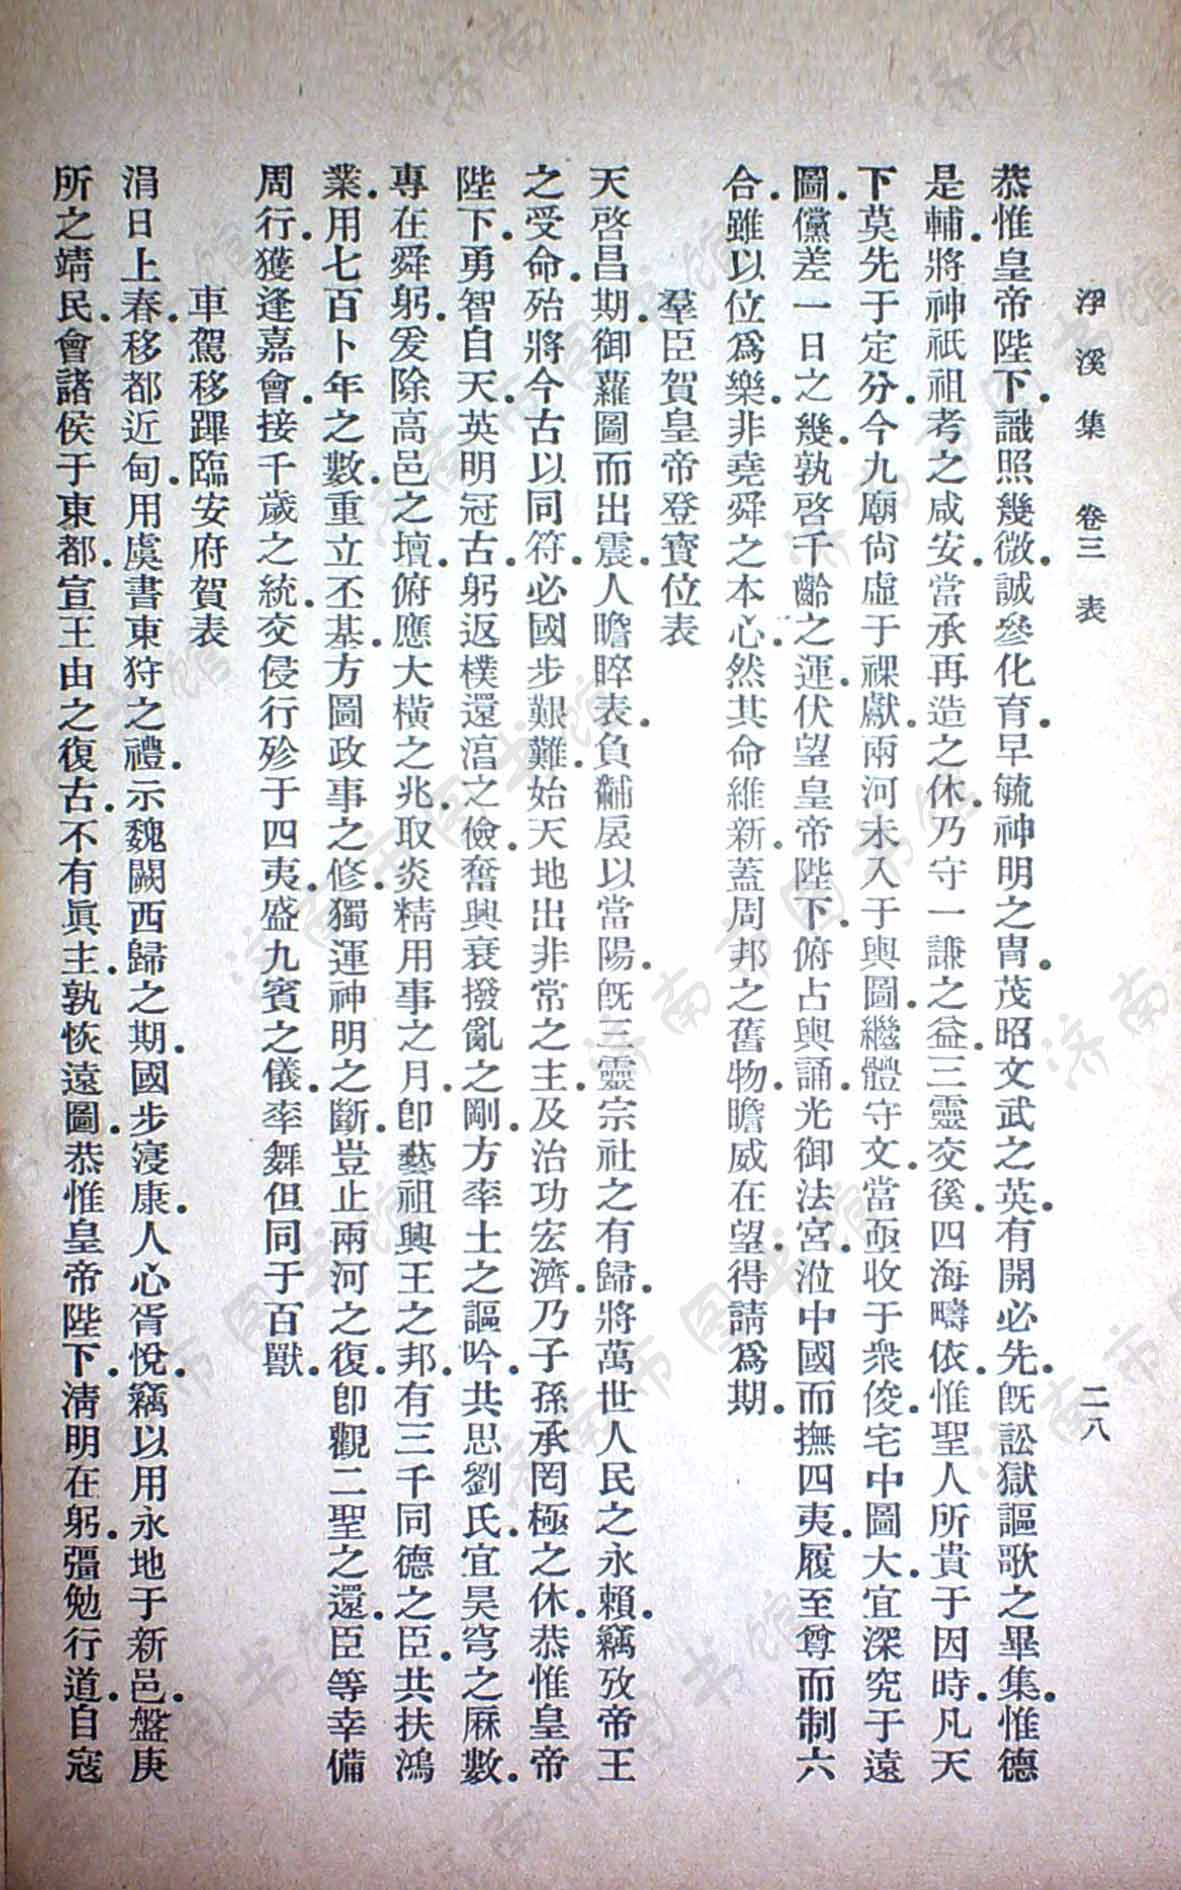 浮溪集 卷三 表 二八
恭惟皇帝陛下.識照幾微.誠參化育.早毓神明之冑.茂昭文武之英.有開必先.旣訟獄謳歌之畢集.惟德
是輔.將神祇祖考之咸安.當承再造之休.乃守一謙之益.三靈交徯.四海疇依.惟聖人所貴于因時.凡天
下莫先于定分.今九廟尙虛于祼獻.兩河未入于輿圖.繼體守文.當亟收于衆俊.宅中圖大.宜深究于遠
圖.儻差一日之幾.孰啓千齡之運.伏望皇帝陛下.俯占輿誦.光御法宮.涖中國而撫四夷.履至尊而制六
合.雖以位爲樂.非堯舜之本心.然其命維新.蓋周邦之舊物.瞻威在望.得請爲期.
羣臣賀皇帝登寶位表
天啓昌期.御蘿圖而出震.人瞻睟表.負黼扆以當陽.旣三靈宗社之有歸.將萬世人民之永賴.竊攷帝王
之受命.殆將今古以同符.必國步艱難.始天地出非常之主.及治功宏濟.乃子孫承罔極之休.恭惟皇帝
陛下.勇智自天.英明冠古.躬返樸還淳之儉.奮興衰撥亂之剛.方率土之謳吟.共思劉氏.宜昊穹之厤數.
專在舜躬.爰除高邑之壇.俯應大橫之兆.取炎精用事之月.卽藝祖興王之邦.有三千同德之臣.共扶鴻
業.用七百卜年之數.重立丕基.方圖政事之修.獨運神明之斷.豈止兩河之復.卽觀二聖之還.臣等幸備
周行.獲逢嘉會.接千歲之統.交侵行殄于四夷.盛九賓之儀.率舞但同于百獸.
車駕移蹕臨安府賀表
涓日上春.移都近甸.用虞書東狩之禮.示魏闕西歸之期.國步寖康.人心胥悅.竊以用永地于新邑.盤庚
所之靖民.會諸侯于東都.宣王由之復古.不有眞主.孰恢遠圖.恭惟皇帝陛下.淸明在躬.彊勉行道.自寇